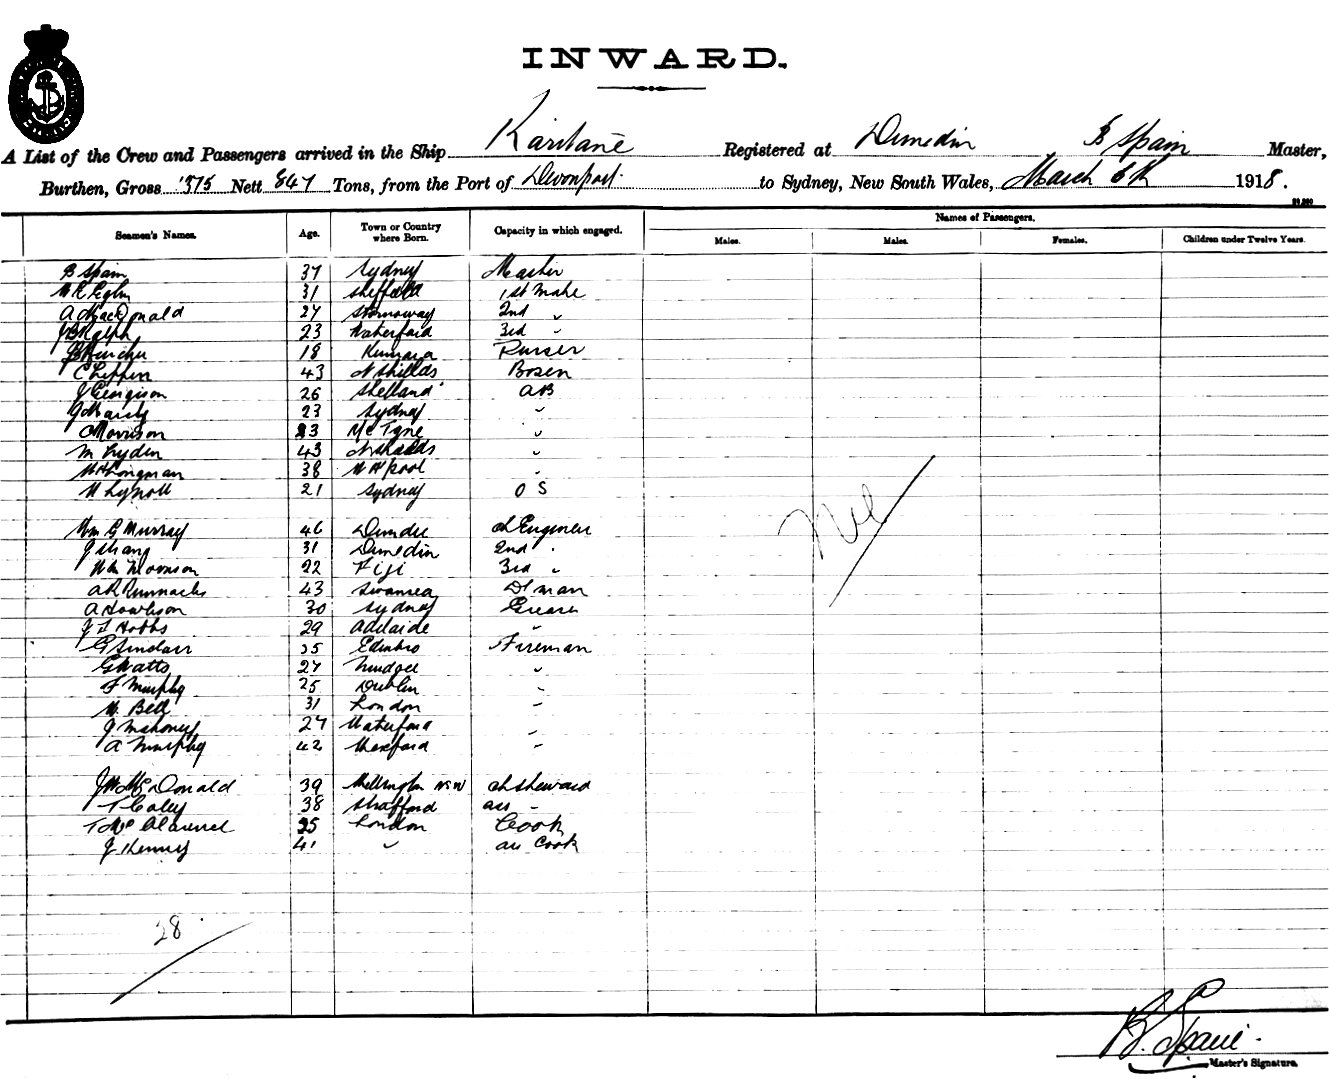 INWARD.
A List of the Crew and Passengers arrived in the Ship Karitane Registered at Dunedin B Spain Master,
Burthen, Gross 1375 Nett 847 Tons, from the Port of Devonport. to Sydney, New South Wales, March 6th 1918.
Names of Passengers.
Seamen's Names. Age. Town or Country where Born. Capacity in which engaged. Males. Males. Females. Children under Twelve Years.
B Spain 37 Sydney Master
31 Sheffield 1st Mate
A MacDonald 27 Stornoway 2nd "
J B Ralph 23 Waterford 3rd "
18 Kumara Purser
C Lippin 43 N Shields Bosen
J Georgison 26 Shetland AB
G Hardy 23 Sydney "
C Morrison 23 "
M Lydin 43 N Shields "
W H Longman 38 W H'pool "
W Lynott 21 Sydney O S
Wm G Murray 46 Dundee Ch Engineer
J Strang 31 Dunedin 2nd "
Wm Morrison 22 Fiji 3rd "
43 Swansea D'man
A Howieson 30 Sydney Greaser
J T Hobbs 29 Adelaide "
G Sinclair 35 Edinbro Fireman
G Watts 27 Mudgee "
F Murphy 25 Dublin "
W. Bell 31 London "
J Mahoney 27 Waterford "
A Murphy 42 Wexford "
J W McDonald 39 Wellington NSW Ch Steward
T Coley 38 Strafford ass "
25 London Cook
J Kenny 41 " ass Cook
Nil
28
B. Spain.
Master's Signature.